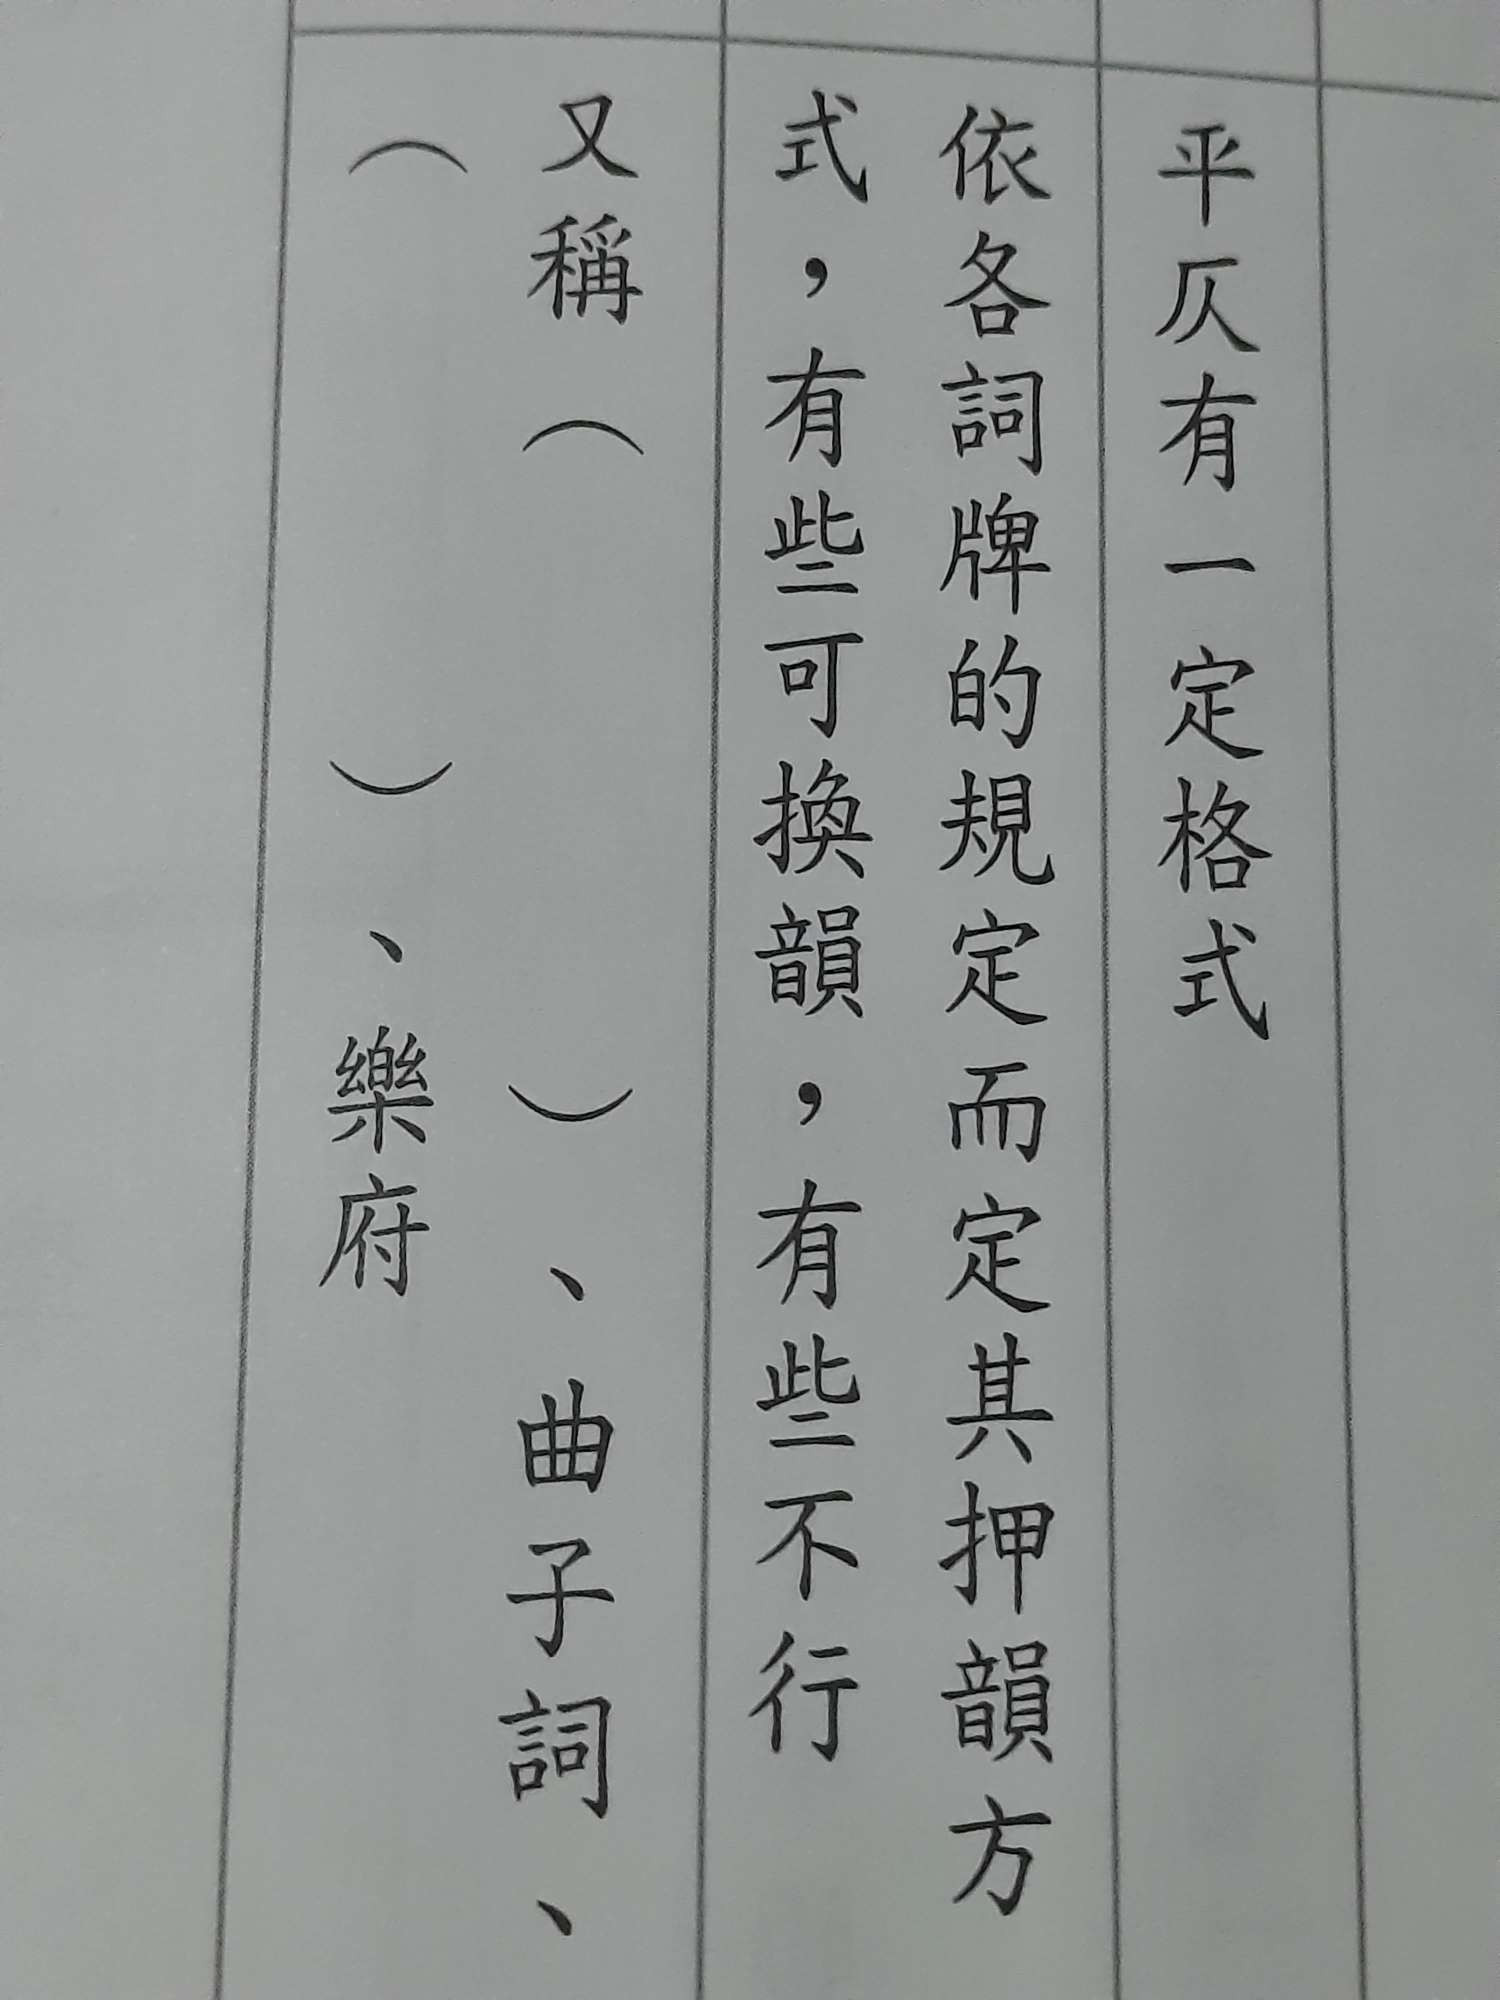 平仄有一定格式
依各詞牌的規定而定其押韻方
式，有些可換韻，有些不行
又稱（　　　　）、曲子詞、
（　　　　）、樂府